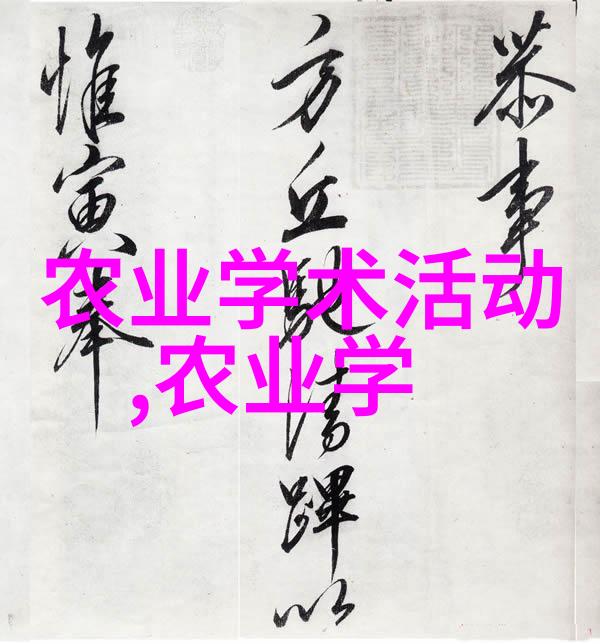 恭事
方丘馳清蹕以
惟寅奉
农业学术活动
,农业学